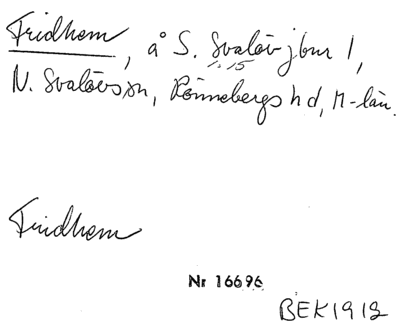 Fridhem, å S. Svalöv jbnr 1,
1:15
N. Svalövs sn, Rönnebergs hd, M-län.
Fridhem
Nr 16696
BEK1912